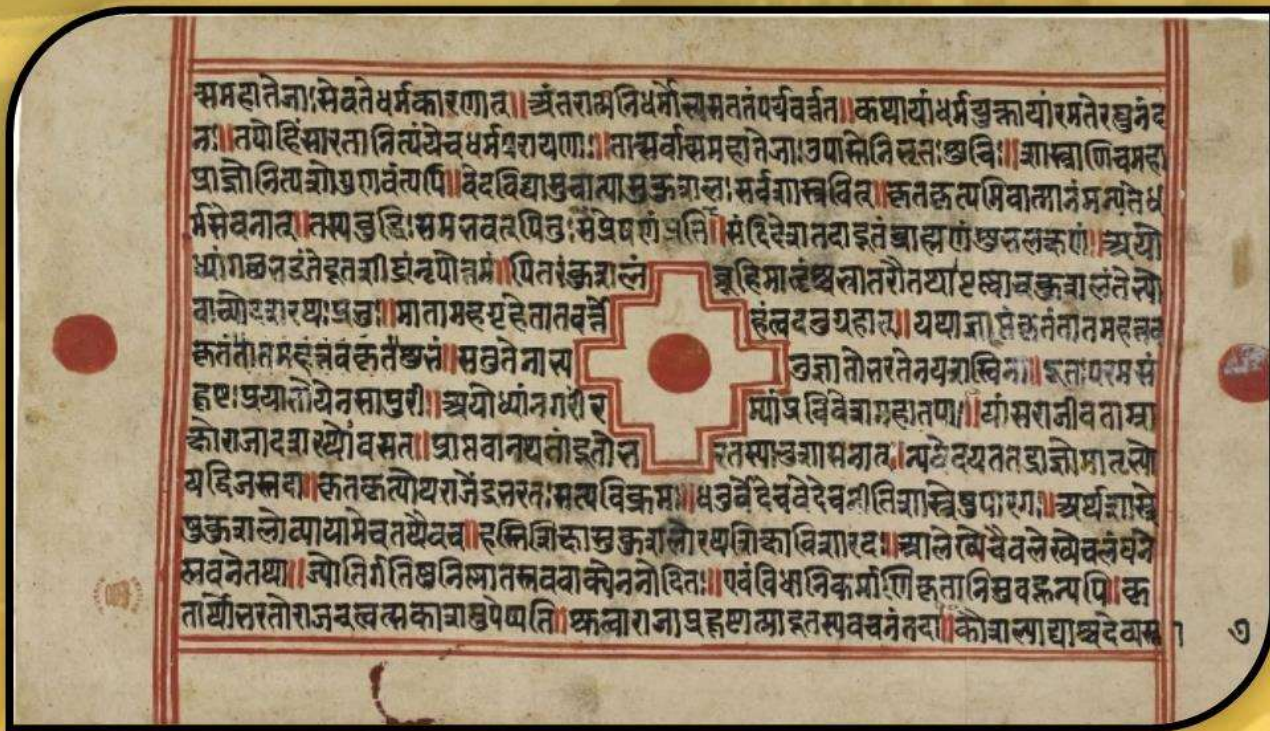 त्समहातेजाःसेवतेधर्मकारणात्॥अंतरात्मनिधर्मात्मासततंपर्यवर्त्तत॥कथायांधर्मयुक्तायांरमतेरघुनंद
नः॥तपोहिंसारतानित्यंयेचधर्मपरायणाः॥तान्सर्वान्समहातेजाःउपास्तेनिभृतःशुचिः॥शास्त्राणिचमहा
प्राज्ञोनित्यशोगुणवंत्यपि॥वेदविद्यासुचान्यासुकुशलःसर्वशास्त्रवित्॥कृतकृत्यमिवात्मानंमन्यतेध
र्मसेवनात्॥तस्यबुद्धिःसमभवत्पितुःसंप्रेषणंप्रति॥संदिदेशतदादूतंब्राह्मणंशुभलक्षणं॥अयो
ध्यांगच्छ दूतशीघ्रंनृपोत्तमं॥पितरंकुशलं ब्रूहिमातॄंश्चभ्रातरौतथा पृष्ट्वाचकुशलंतेभ्यो
वाच्योदशरथःप्रभुः॥मातामहगृहेतात हंत्वदनुग्रहात्॥
कृतं सतुतेनाभ्य नुज्ञातोभरतेनयशस्विना॥दूतःपरमसं
हृष्टःप्रयातोयेनसापुरी॥अयोध्यांनगरीं प्रविवेशमहातपाः॥यांसराजीवताम्रा
क्षोराजादशरथोवसत्॥प्राप्तवानथतांदूतोभ रतस्यानुशासनात्॥न्यवेदयततद्राज्ञोमातृभ्यो
यद्विजस्तदा॥कृतकृत्योथराजेंद्रभरतःसत्यविक्रमः॥धनुर्वेदेचवेदेचनीतिशास्त्रेषुपारगः॥अर्थशास्त्रे
षुकुशलोव्यायामेचतथैवच॥हस्तिशिक्षासुकुशलोरथशिक्षाविशारदः॥आलेख्येचैवलेख्येचलंघने
प्लवनेतथा॥ज्योतिर्गतिषुनिष्णातस्तववाक्येननोदितः॥एवंविधानिकर्माणिकृतानिसुबहून्यपि॥कृ
तार्थोभरतोराजन्त्वत्सकाशमुपेष्यति॥श्रुत्वाराजाप्रहृष्टात्मादूतस्यवचनंतदा॥कौशल्याद्याश्चदेव्यस्ता
७